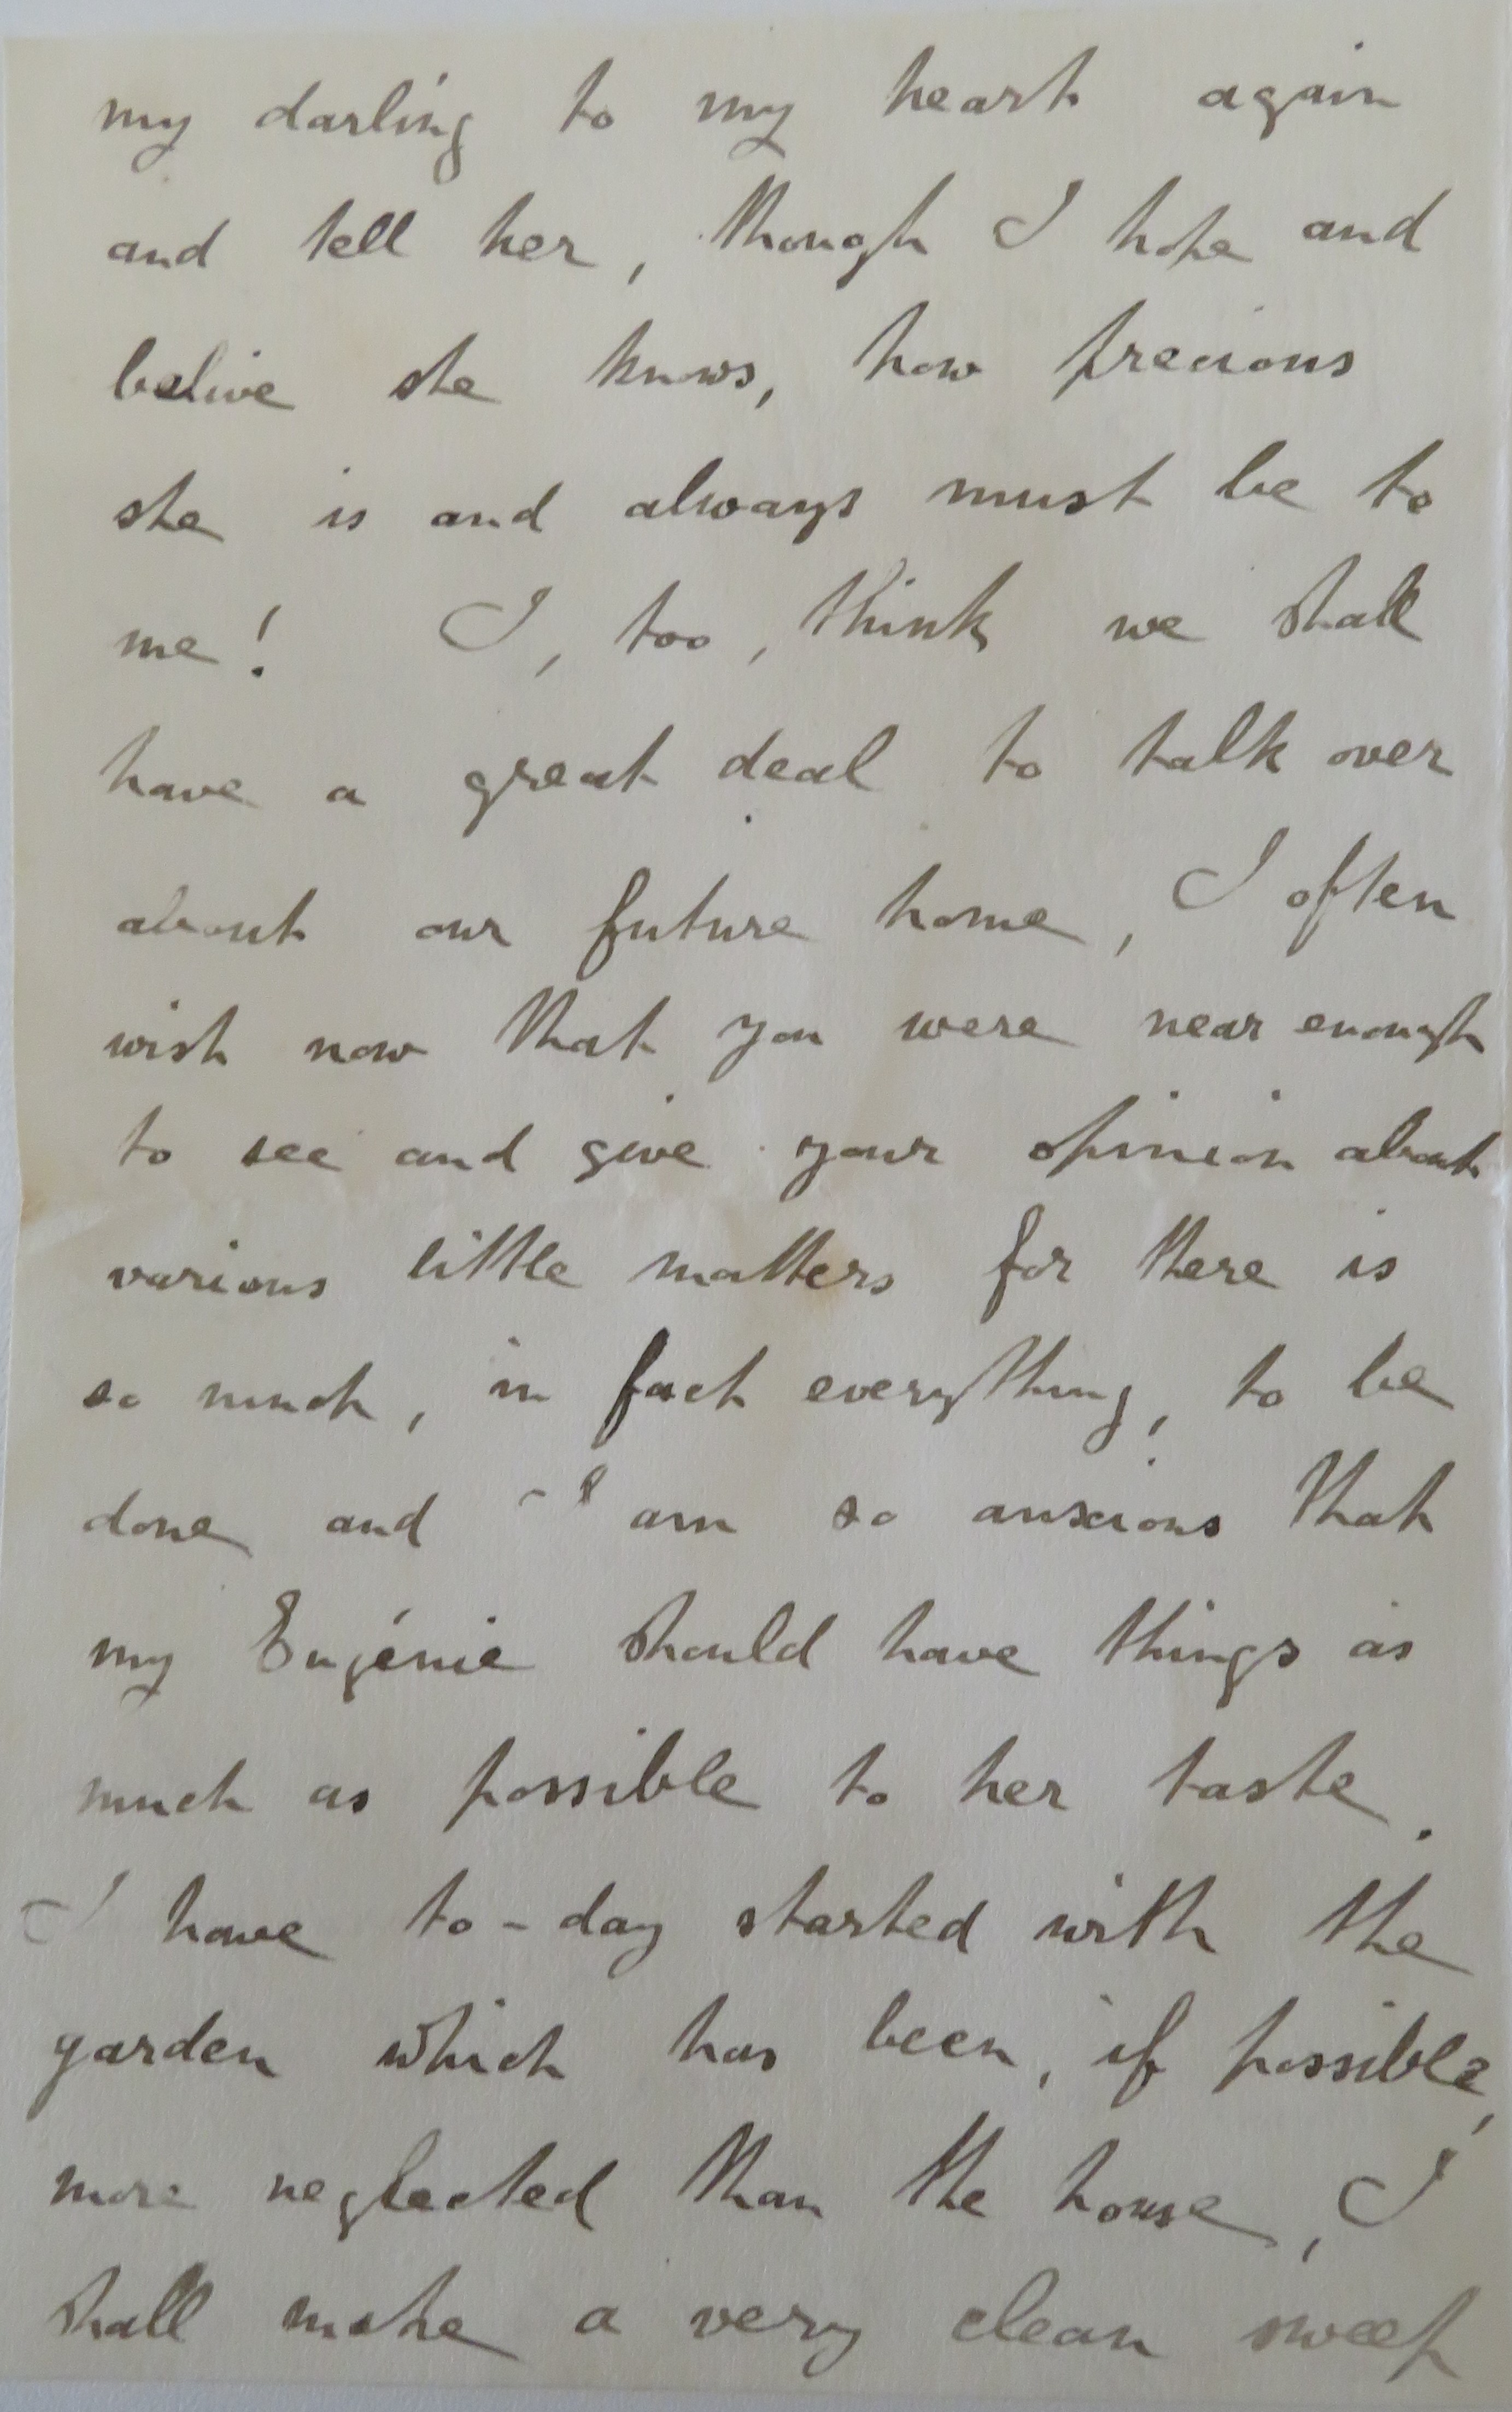 my darling to my heart again
and tell her, though I hope and
belive she knows, how precious
she is and always must be to
me! I, too, think we shall
have a great deal to talk over
about our future home, I often
wish now that you were near enough
to see and give your opinion about
various little matters for there is
so much, in fact everything, to be
done and I am so anxious that
my Eugénie should have things as
much as possible to her taste.
I have to-day started with the
garden which has been, if possible,
more neglected than the house, I
shall make a very clean sweep